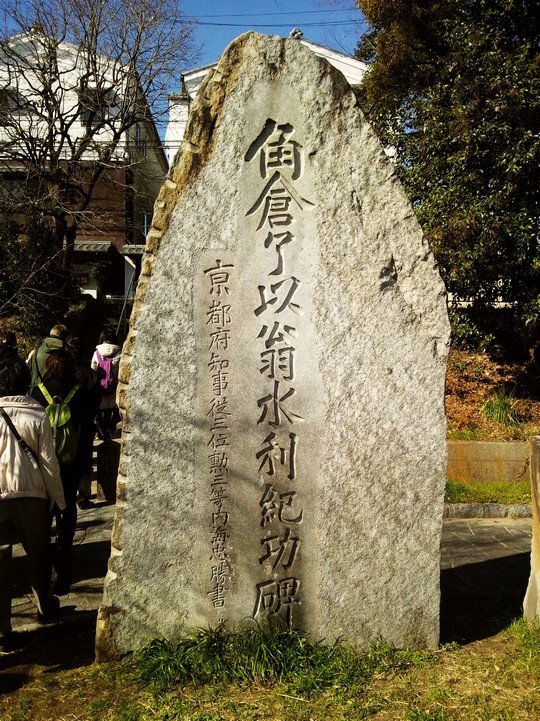 角倉了以翁水利紀功碑
京都府知事従三位勲三等内海忠勝書